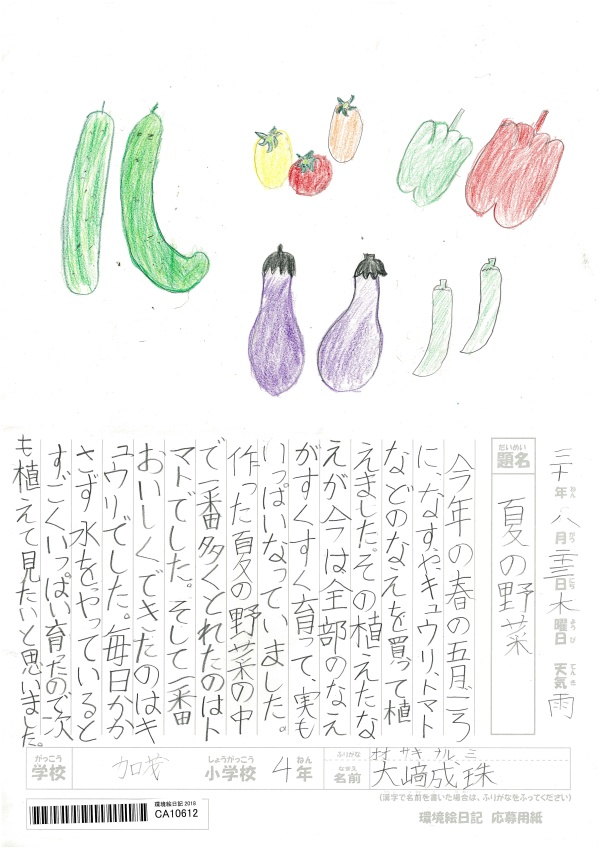 三十年ねん八月がつ二十三日にち木曜日ようび 天気てんき雨
だいめい
題名 夏の野菜
今年の春の五月ごろ
に、なすやキュウリ、トマト
などのなえを買って植
えました。その植えたな
えが今は全部のなえ
がすくすく育って、実も
いっぱいなっていました。
作った夏の野菜の中
で一番多くとれたのはト
マトでした。そして一番
おいしくできたのはキ
ュウリでした。毎日かか
さず水をやっていると
すごくいっぱい育ったので次
も植えて見たいと思いました。
がっこう しょうがっこう ねん ふりがな オオ サキ ナル ミ
学校 加茂 小学校 4年 なまえ 名前 大﨑成珠
(漢字で名前を書いた場合は、ふりがなをふってください)
環境絵日記 2018
CA10612
環境絵日記 応募用紙